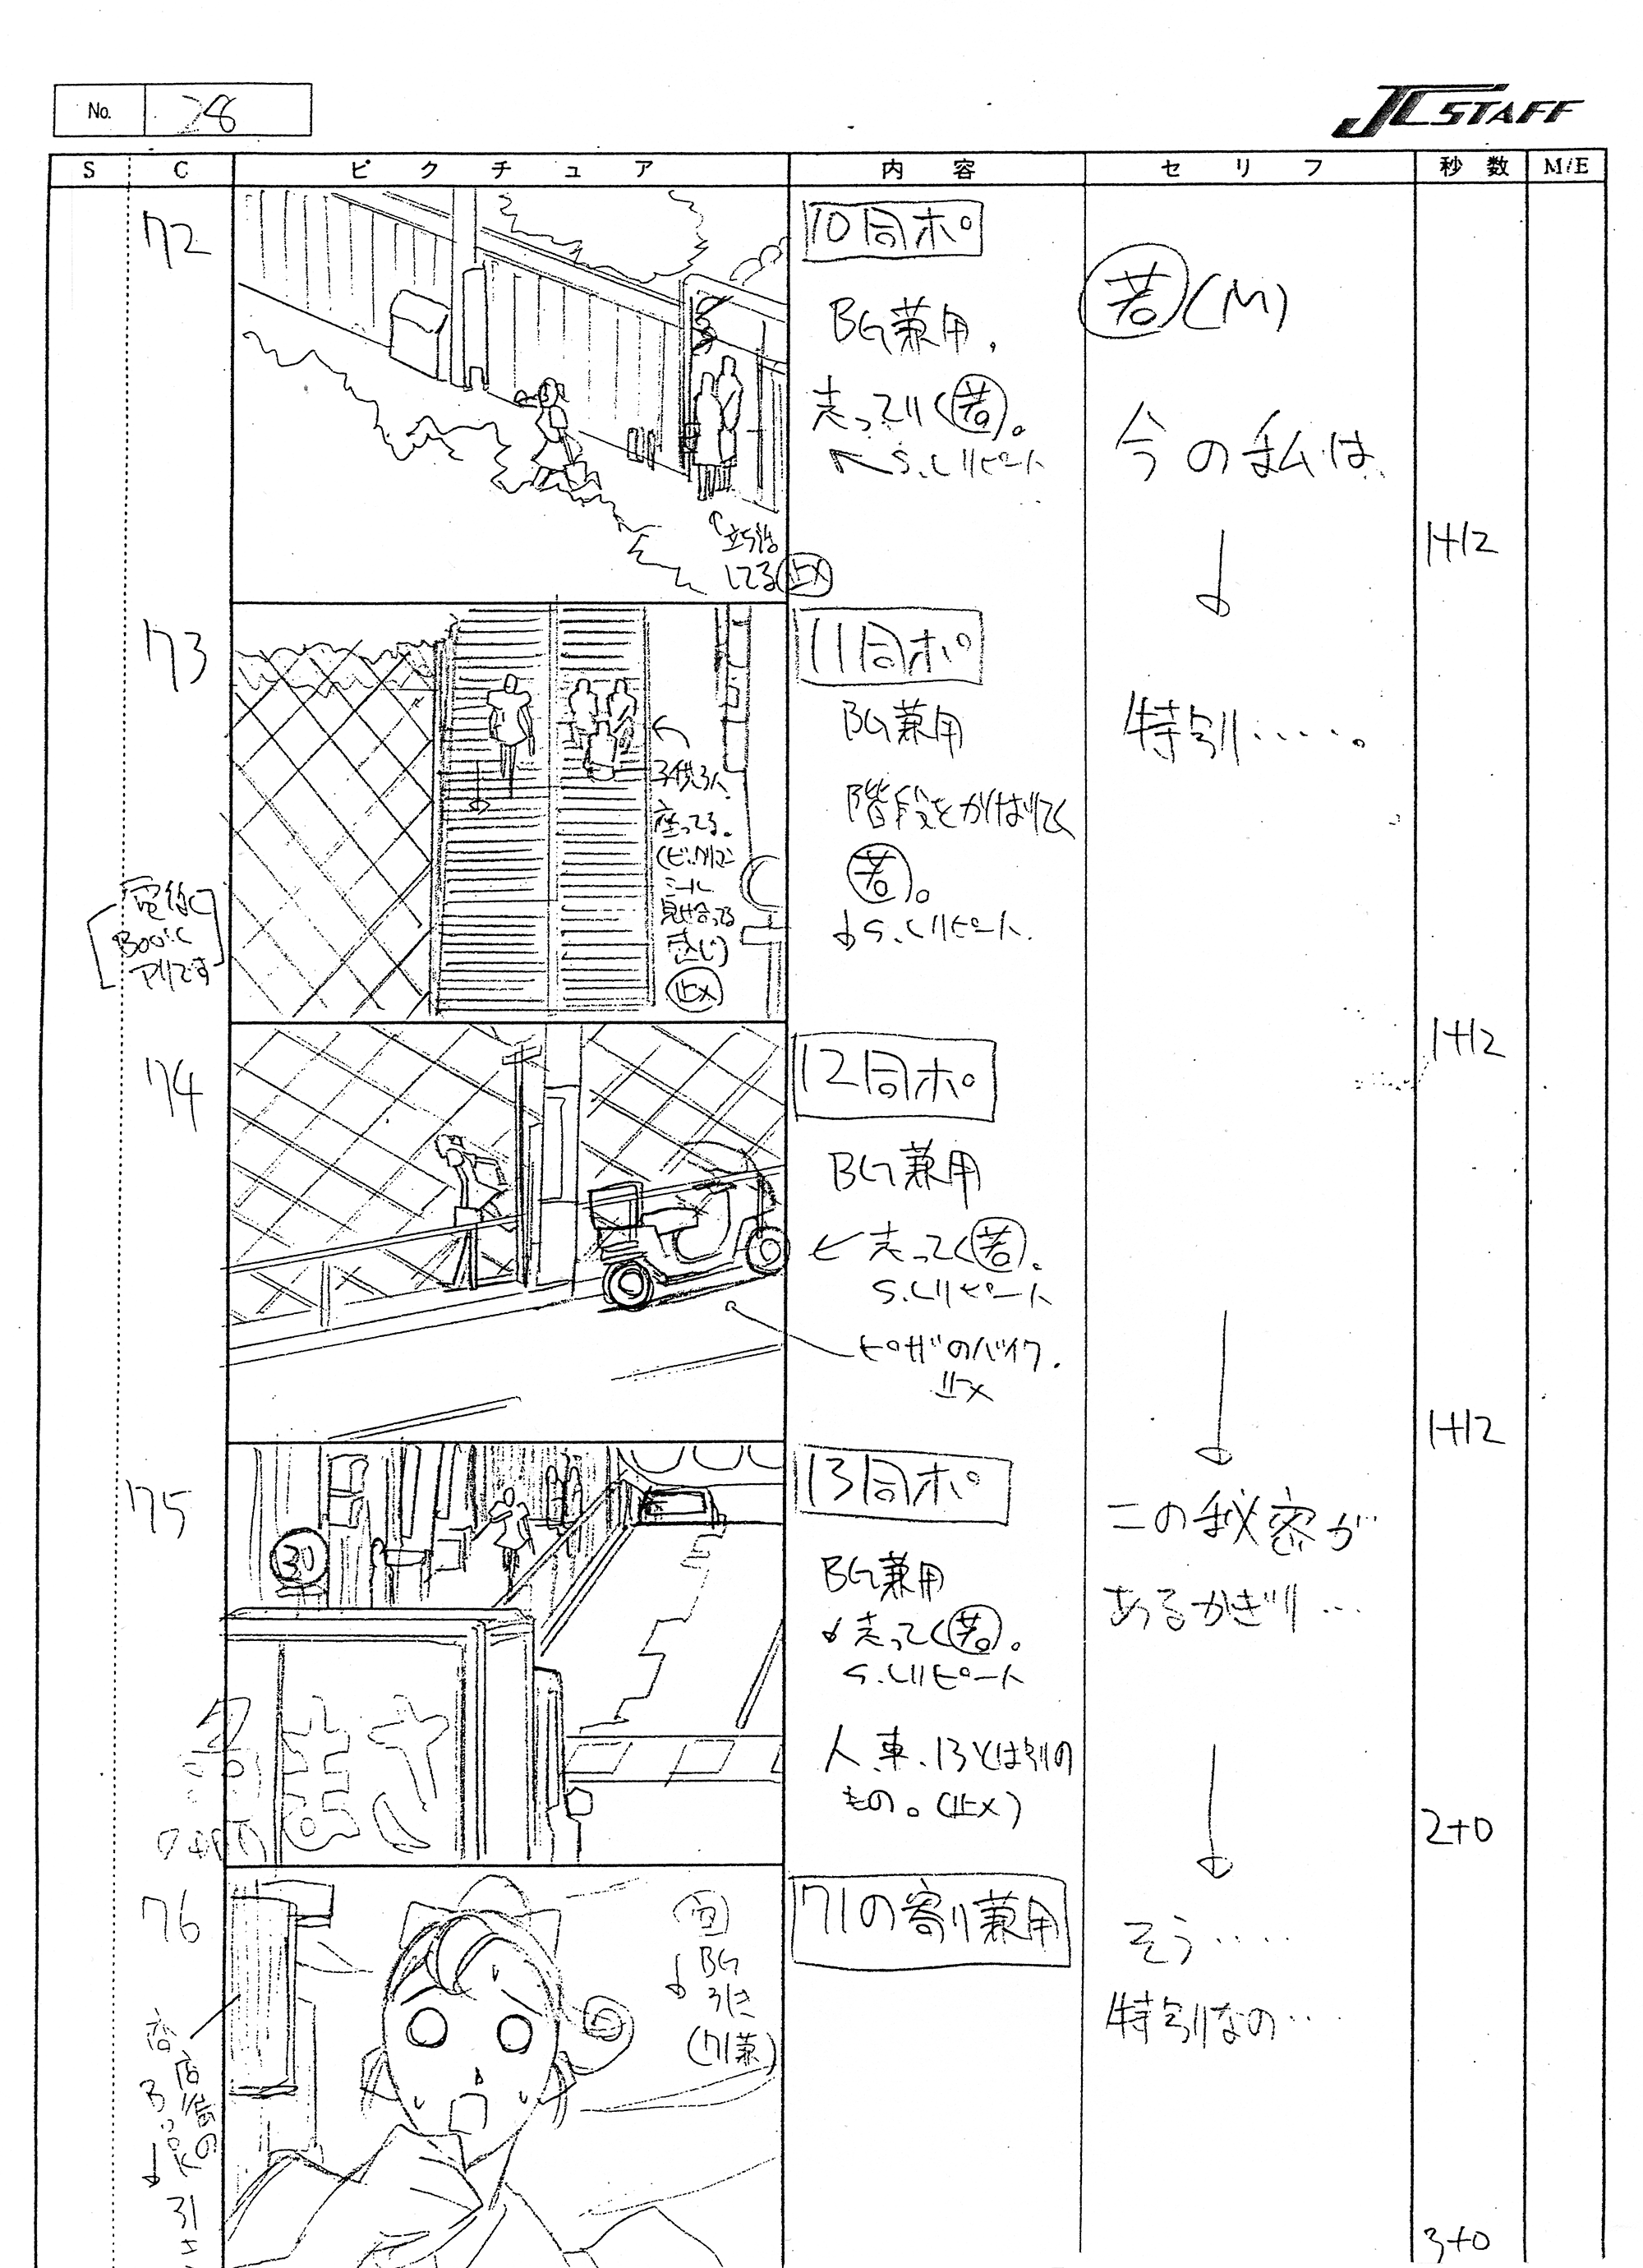 No. 28
JC STAFF
S C ピクチュア 内容 セリフ 秒数 M/E
72
10同ポ
BG兼用.
走ってく若。
S.Lリピート
立ち話
してる 止メ
若(M)
今の私は
1+12
73
11同ポ
BG兼用
階段をかけおりてく
若。
S.Lリピート.
子供3人
座ってる。
見せ合ってる
感じ)
止メ
BOOK
アリです
特別‥‥。
1+12
74
12同ポ
BG兼用
走ってく若.
S.Lリピート
ピザのバイク.
止メ
1+12
75
13同ポ
BG兼用
走ってく若。
S.Lリピート
人、車、13とは別の
もの。(止メ)
30
この秘密が
あるかぎり…
2+0
76
71の寄り兼用
BG
引き
(71兼)
商店街の
Book
引き
そう‥‥
特別なの‥
3+0